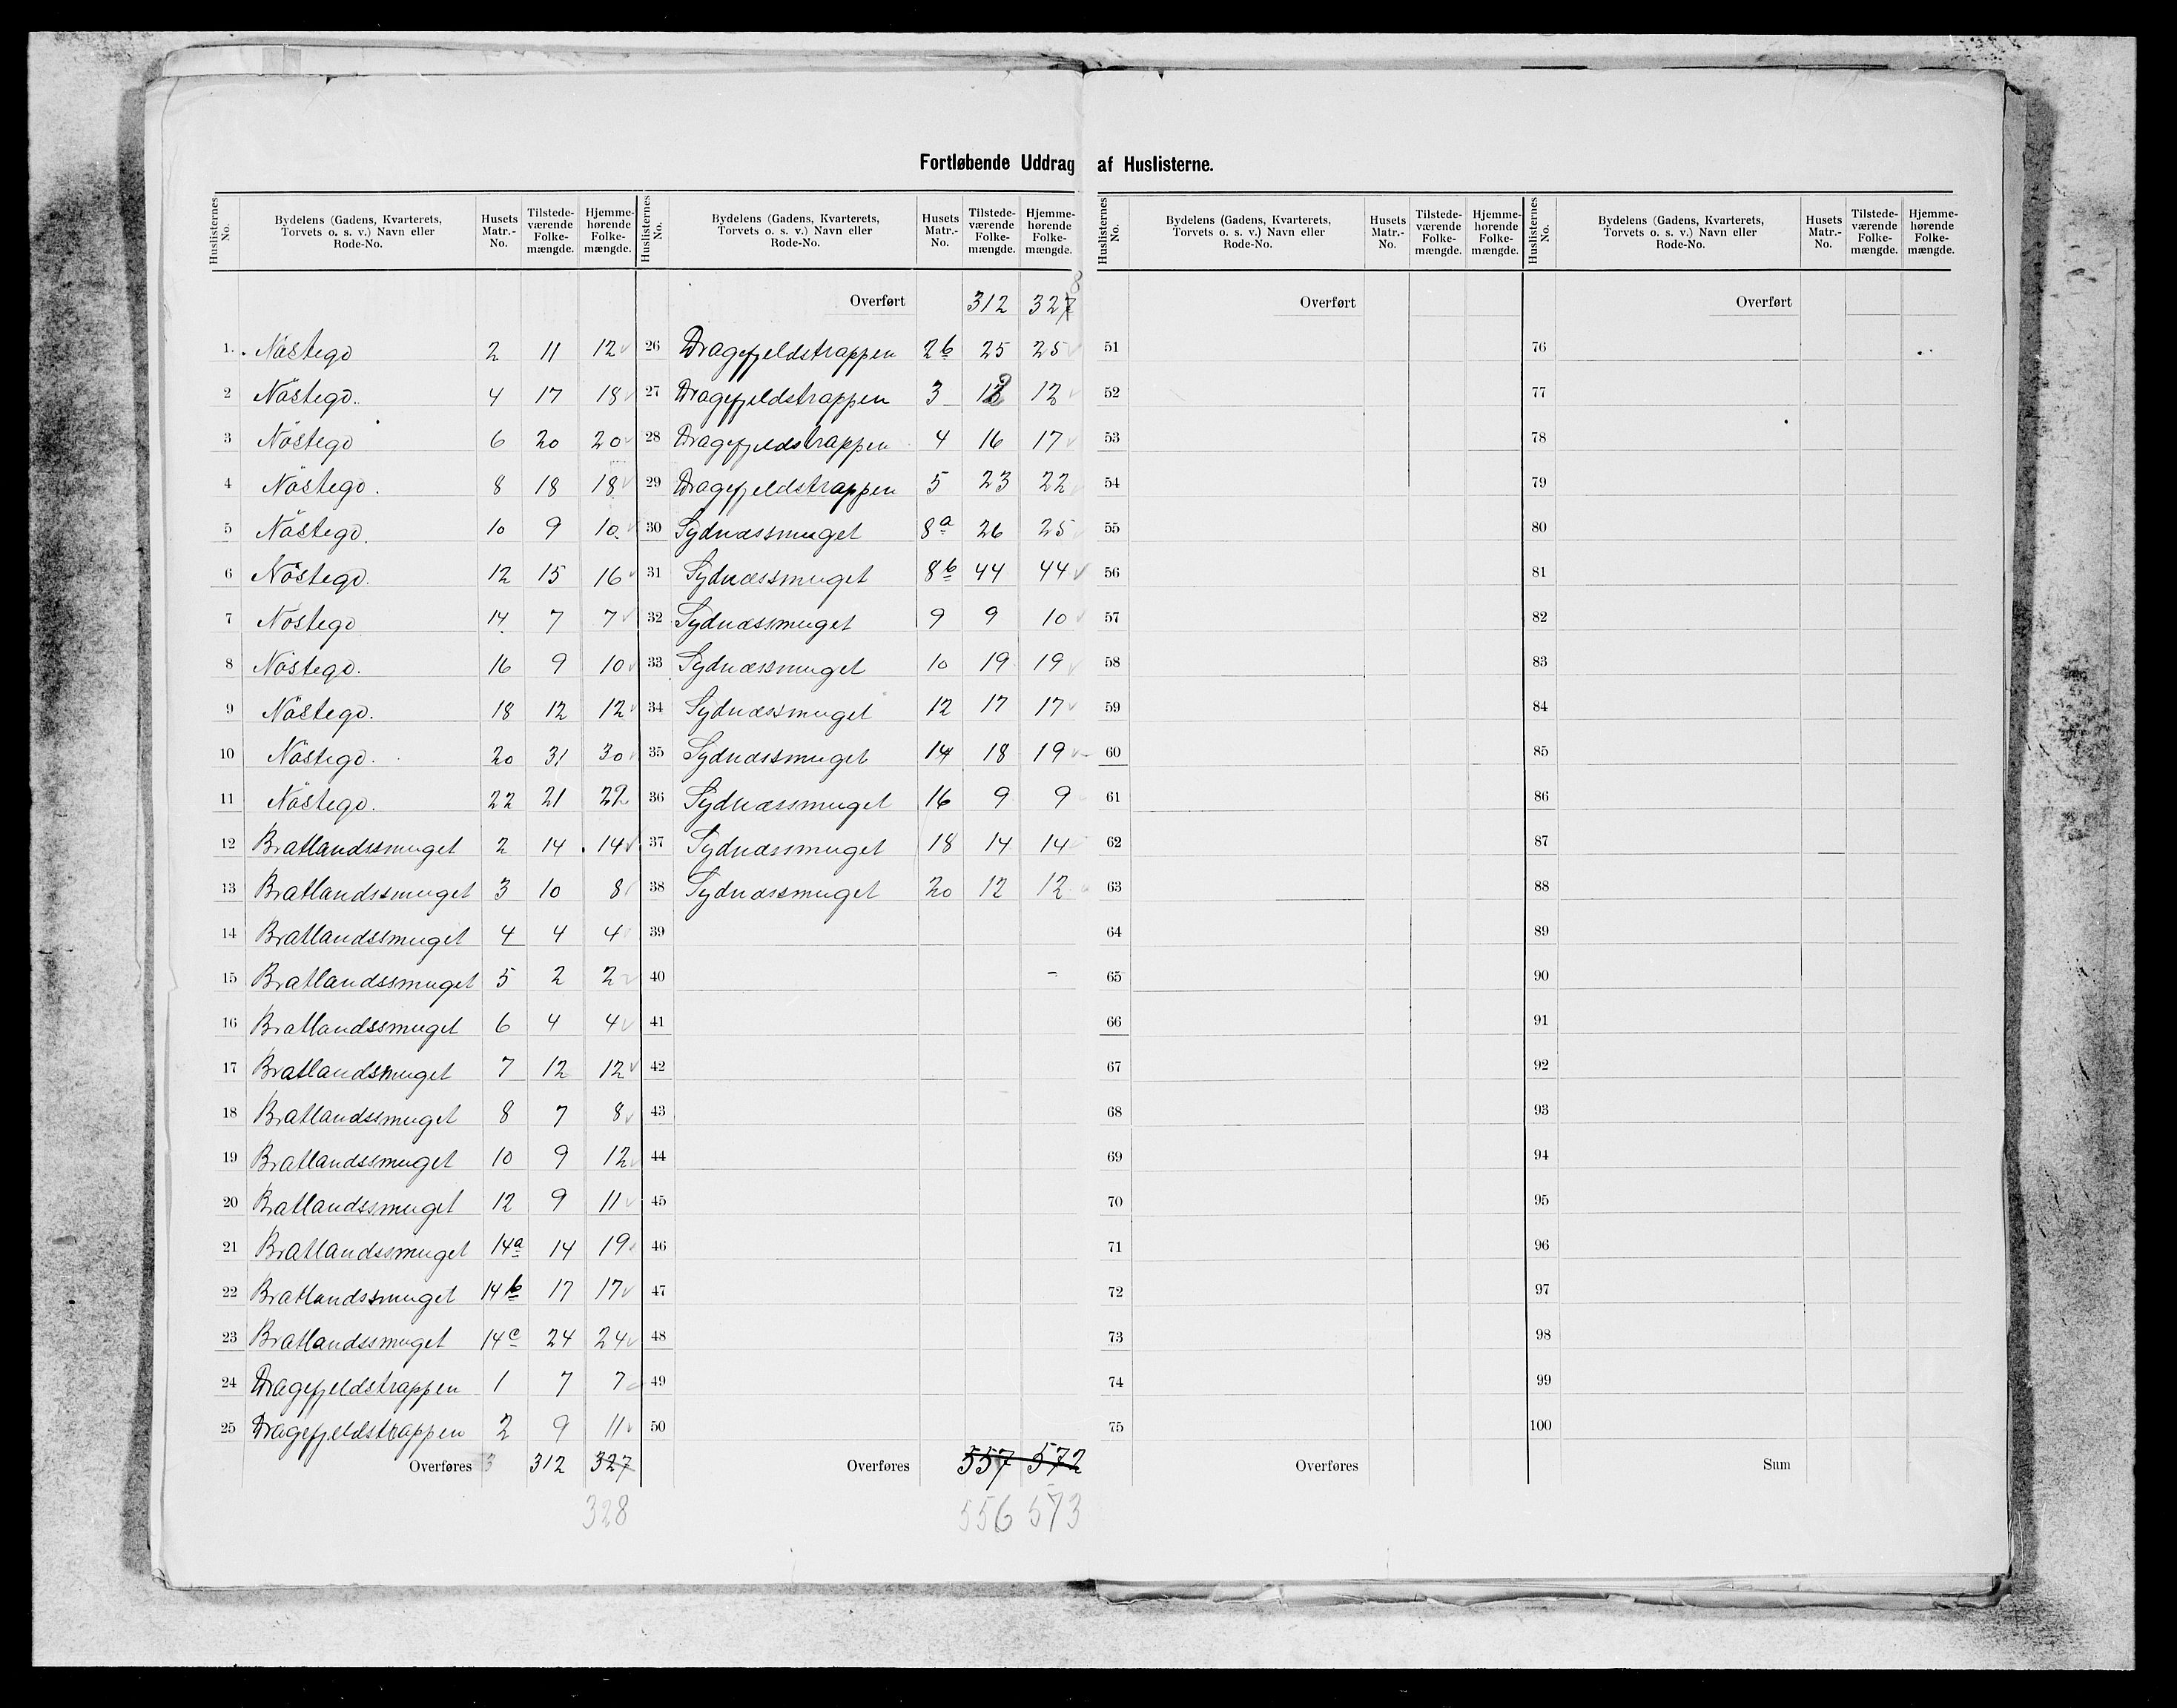 Fortløbende Uddrag af Huslisterne.
Huslisternes No. | Bydelens (Gadens, Kvarterets, Torvets o. s. v.) Navn eller Rode-No. | Husets Matr.-No. | Tilstedeværende Folkemængde. | Hjemmehørende Folkemængde.
1. Nöstegd 2 11 12
2 Nöstegd. 4 17 18
3 Nöstegd 6 20 20
4 Nöstegd. 8 18 18
5 Nöstegd. 10 9 10
6 Nöstegd. 12 15 16
7 Nöstegd 14 7 7
8 Nöstegd. 16 9 10
9 Nöstegd. 18 12 12
10 Nöstegd. 20 31 30
11 Nöstegd. 22 21 22
12 Bratlandssmuget 2 14 14
13 Bratlandssmuget 3 10 8
14 Bratlandssmuget 4 4 4
15 Bratlandssmuget 5 2 2
16 Bratlandssmuget 6 4 4
17 Bratlandsmuget 7 12 12
18 Bratlandssmuget 8 7 8
19 Bratlandssmuget 10 9 12
20 Bratlandssmuget 12 9 11
21 Bratlandssmuget 14a 14 19
22 Bratlandssmuget 14b 17 17
23 Bratlandssmuget 14c 24 24
24 Dragefjeldstrappen 1 7 7
25 Dragefjeldstrappen 2 9 11
Overføres 3 312 327
328
Huslisternes No. | Bydelens (Gadens, Kvarterets, Torvets o. s. v.) Navn eller Rode-No. | Husets Matr.-No. | Tilstedeværende Folkemængde. | Hjemmehørende Folkemængde.
Overført 312 327 8
26 Dragefjeldstrappen 2b 25 25
27 Dragefjeldstrappen 3 12 12
28 Dragefjeldstrappen 4 16 17
29 Dragefjeldstrappen 5 23 22
30 Sydnæssmuget 8a 26 25
31 Sydnæssmuget 8b 44 44
32 Sydnæssmuget 9 9 10
33 Sydnæssmuget 10 19 19
34 Sydnæssmuget 12 17 17
35 Sydnæssmuget 14 18 19
36 Sydnæssmuget 16 9 9
37 Sydnæssmuget 18 14 14
38 Sydnæssmuget 20 12 12
39
40
41
42
43
44
45
46
47
48
49
50
Overføres 557 572
556 573
Huslisternes No. | Bydelens (Gadens, Kvarterets, Torvets o. s. v.) Navn eller Rode-No. | Husets Matr.-No. | Tilstedeværende Folkemængde. | Hjemmehørende Folkemængde.
Overført
51
52
53
54
55
56
57
58
59
60
61
62
63
64
65
66
67
68
69
70
71
72
73
74
75
Overføres
Huslisternes No. | Bydelens (Gadens, Kvarterets, Torvets o. s. v.) Navn eller Rode-No. | Husets Matr.-No. | Tilstedeværende Folkemængde. | Hjemmehørende Folkemængde.
Overført
76
77
78
79
80
81
82
83
84
85
86
87
88
89
90
91
92
93
94
95
96
97
98
99
100
Sum